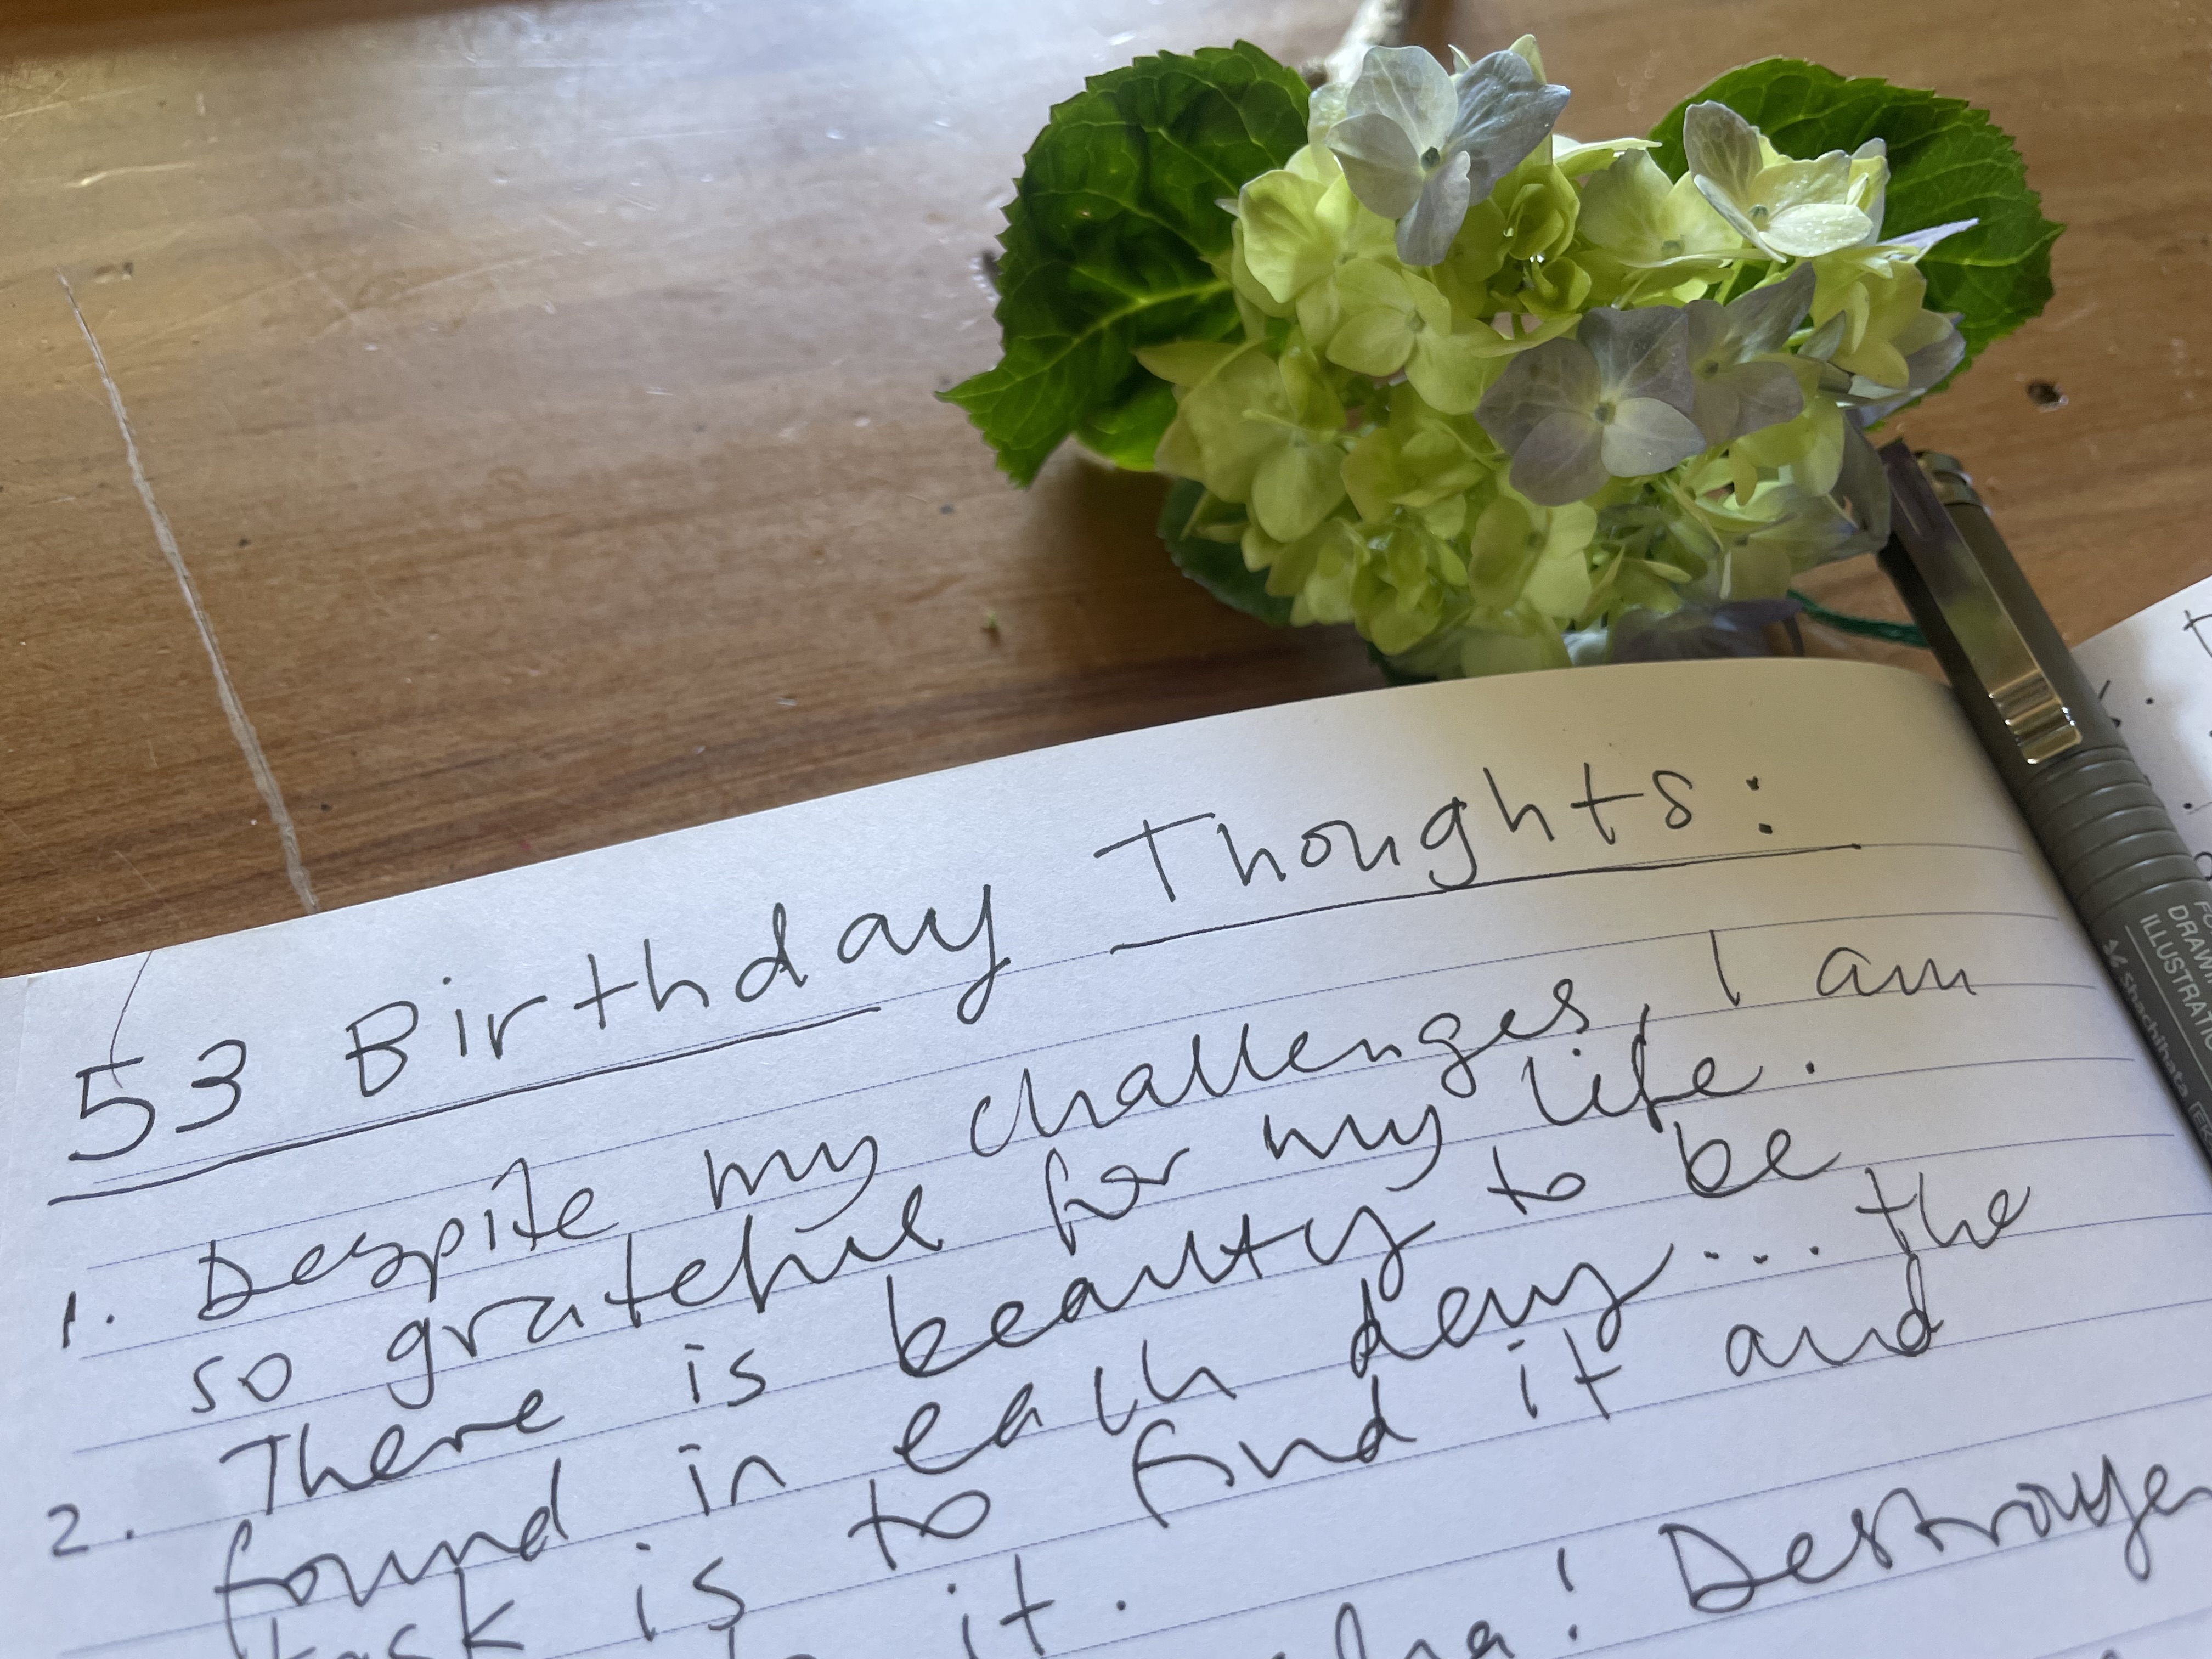 53 Birthday Thoughts:
1. Despite my challenges, I am
so grateful for my life.
2. There is beauty to be
found in each day... the
task is to find it and
it.
! Destroyer
DRAW
ILLUSTRATI
Shachihata